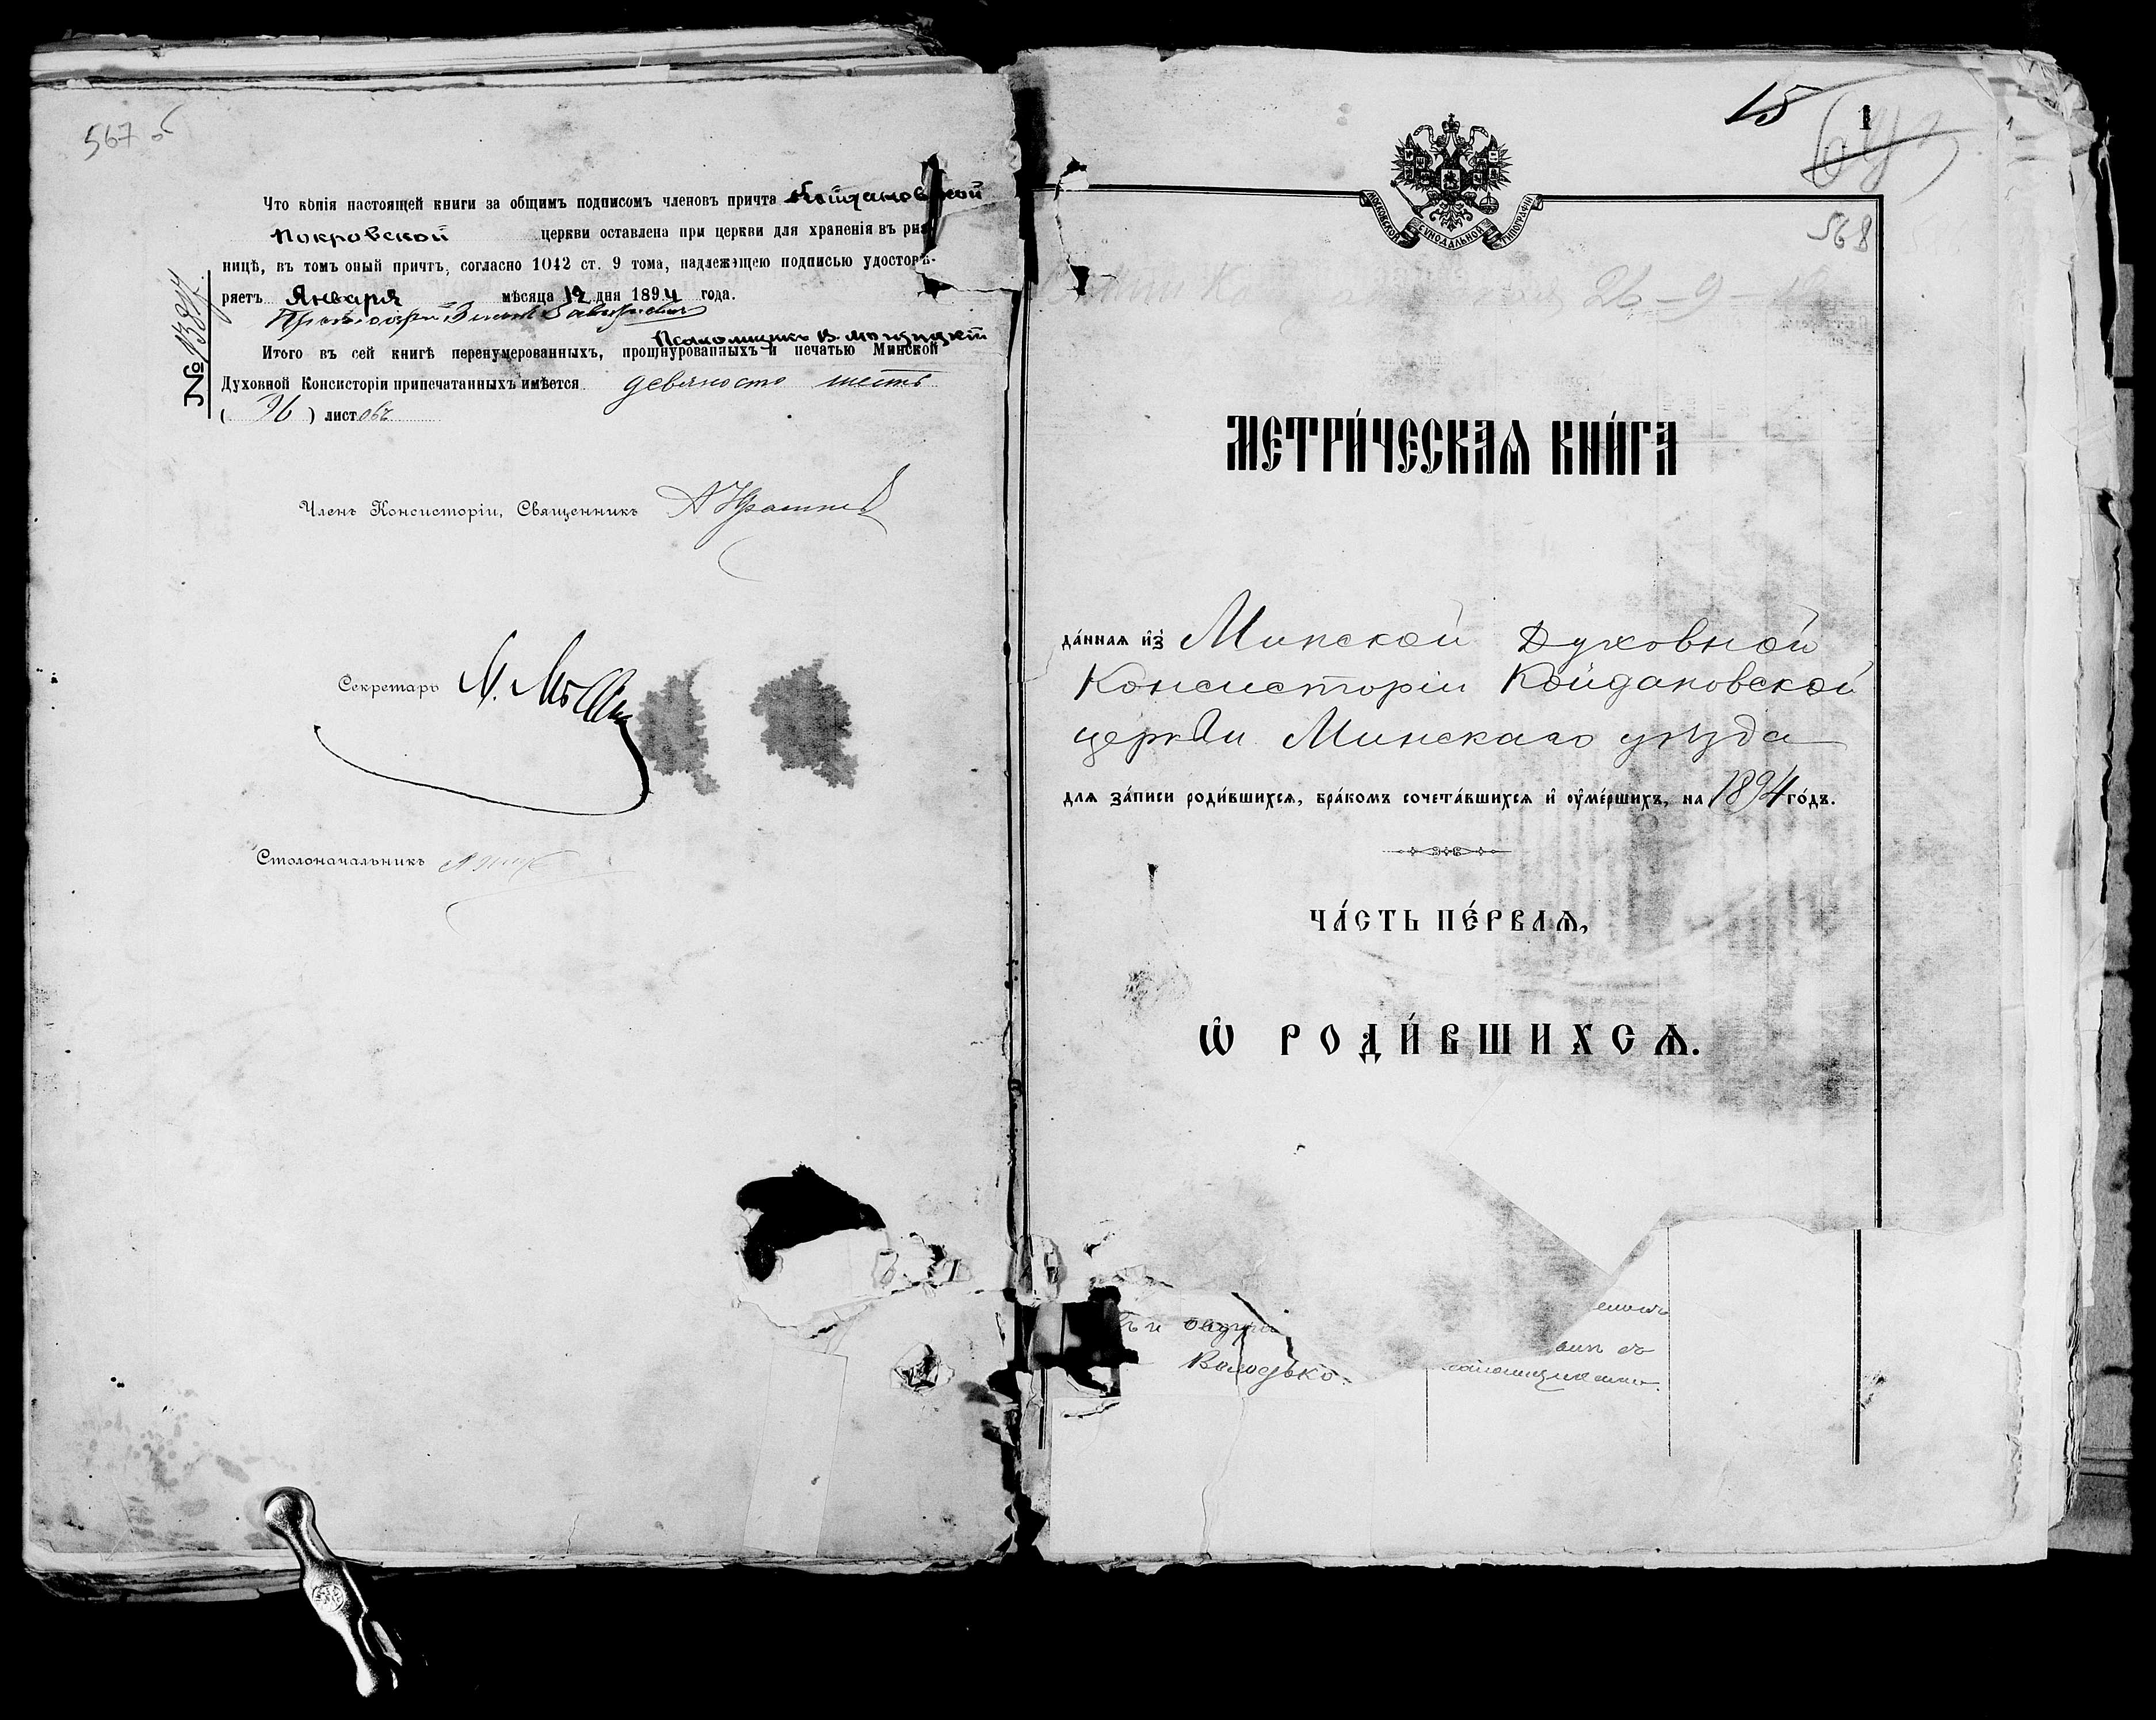 567 об
Что копія настоящей книги за общимъ подписомъ членовъ причта Койдановской
Покровской церкви оставлена при церкви для храненія въ риз-
ницѣ, въ томъ оный причтъ, согласно 1042 ст. 9 тома, надлежащею подписью удостовѣ-
ряетъ Января мѣсяца 12 дня 1894 года.
Псаломщикъ В.
Итого въ сей книгѣ перенумерованныхъ, прошнурованныхъ и печатью Минской
Духовной Консисторіи припечатанныхъ имѣется девяносто шесть
( 96 ) листовъ
№
Членъ Консисторіи, Священникъ
Секретарь
Столоначальникъ
15
1
568
МОСКОВСКОЙ СѴНОДАЛЬНОЙ ТИПОГРАФІИ
МЕТРИ́ЧЕСКАѦ КНИ́ГА
да́ннаѧ и҆з̾ Минской Духовной
Консисторіи Койдановской
церкви Минскаго уѣзда
длѧ за́писи роди́вшихсѧ, бра́комъ сочета́вшихсѧ и҆ оу҆ме́ршихъ, на 1894 го́дъ.
ЧА́СТЬ ПЕ́РВАѦ,
Ѽ РОДИ́ВШИХСѦ.
Володько.